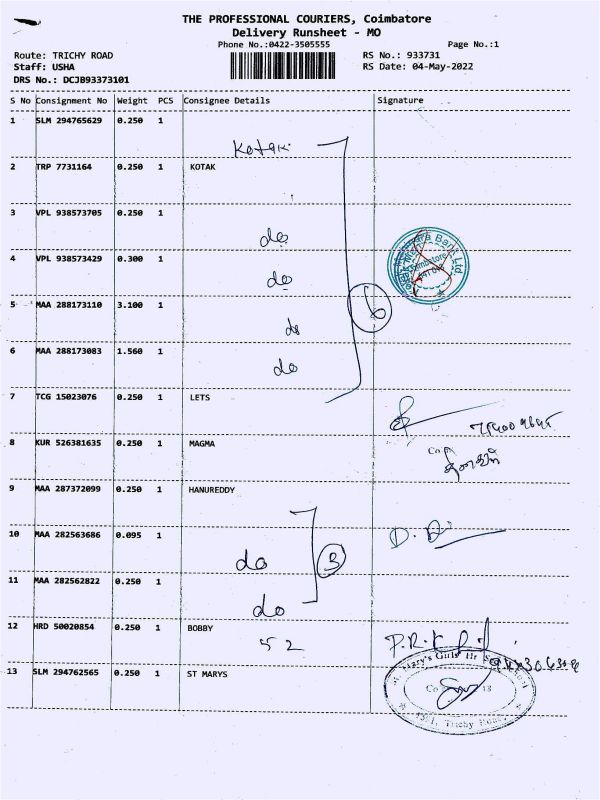 THE PROFESSIONAL COURIERS, Coimbatore
Delivery Runsheet - MO
Phone No.:0422-3505555
Page No.:1
Route: TRICHY ROAD
RS No.: 933731
Staff: USHA
RS Date: 04-May-2022
DRS No.: DCJB93373101
S No Consignment No Weight PCS Consignee Details Signature
1 SLM 294765629 0.250 1
Kotak
2 TRP 7731164 0.250 1 KOTAK
3 VPL 938573705 0.250 1
do
4 VPL 938573429 0.300 1
do
5 MAA 288173110 3.100 1
6
do
6 MAA 288173083 1.560 1
do
7 TCG 15023076 0.250 1 LETS
8 KUR 526381635 0.250 1 MAGMA
9 MAA 287372099 0.250 1 HANUREDDY
10 MAA 282563686 0.095 1
do 3
11 MAA 282562822 0.250 1
do
12 HRD 50020854 0.250 1 BOBBY
52
13 SLM 294762565 0.250 1 ST MARYS
Mary's Girls Hr
Trichy Road